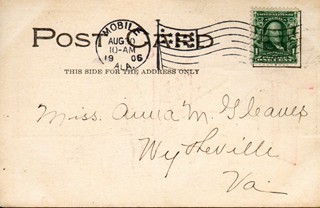 POST CARD
MOBILE
AUG
10-AM
1906
ALA.
THIS SIDE FOR THE ADDRESS ONLY
Miss. Anna M. Gleaves
Wytheville
Va.